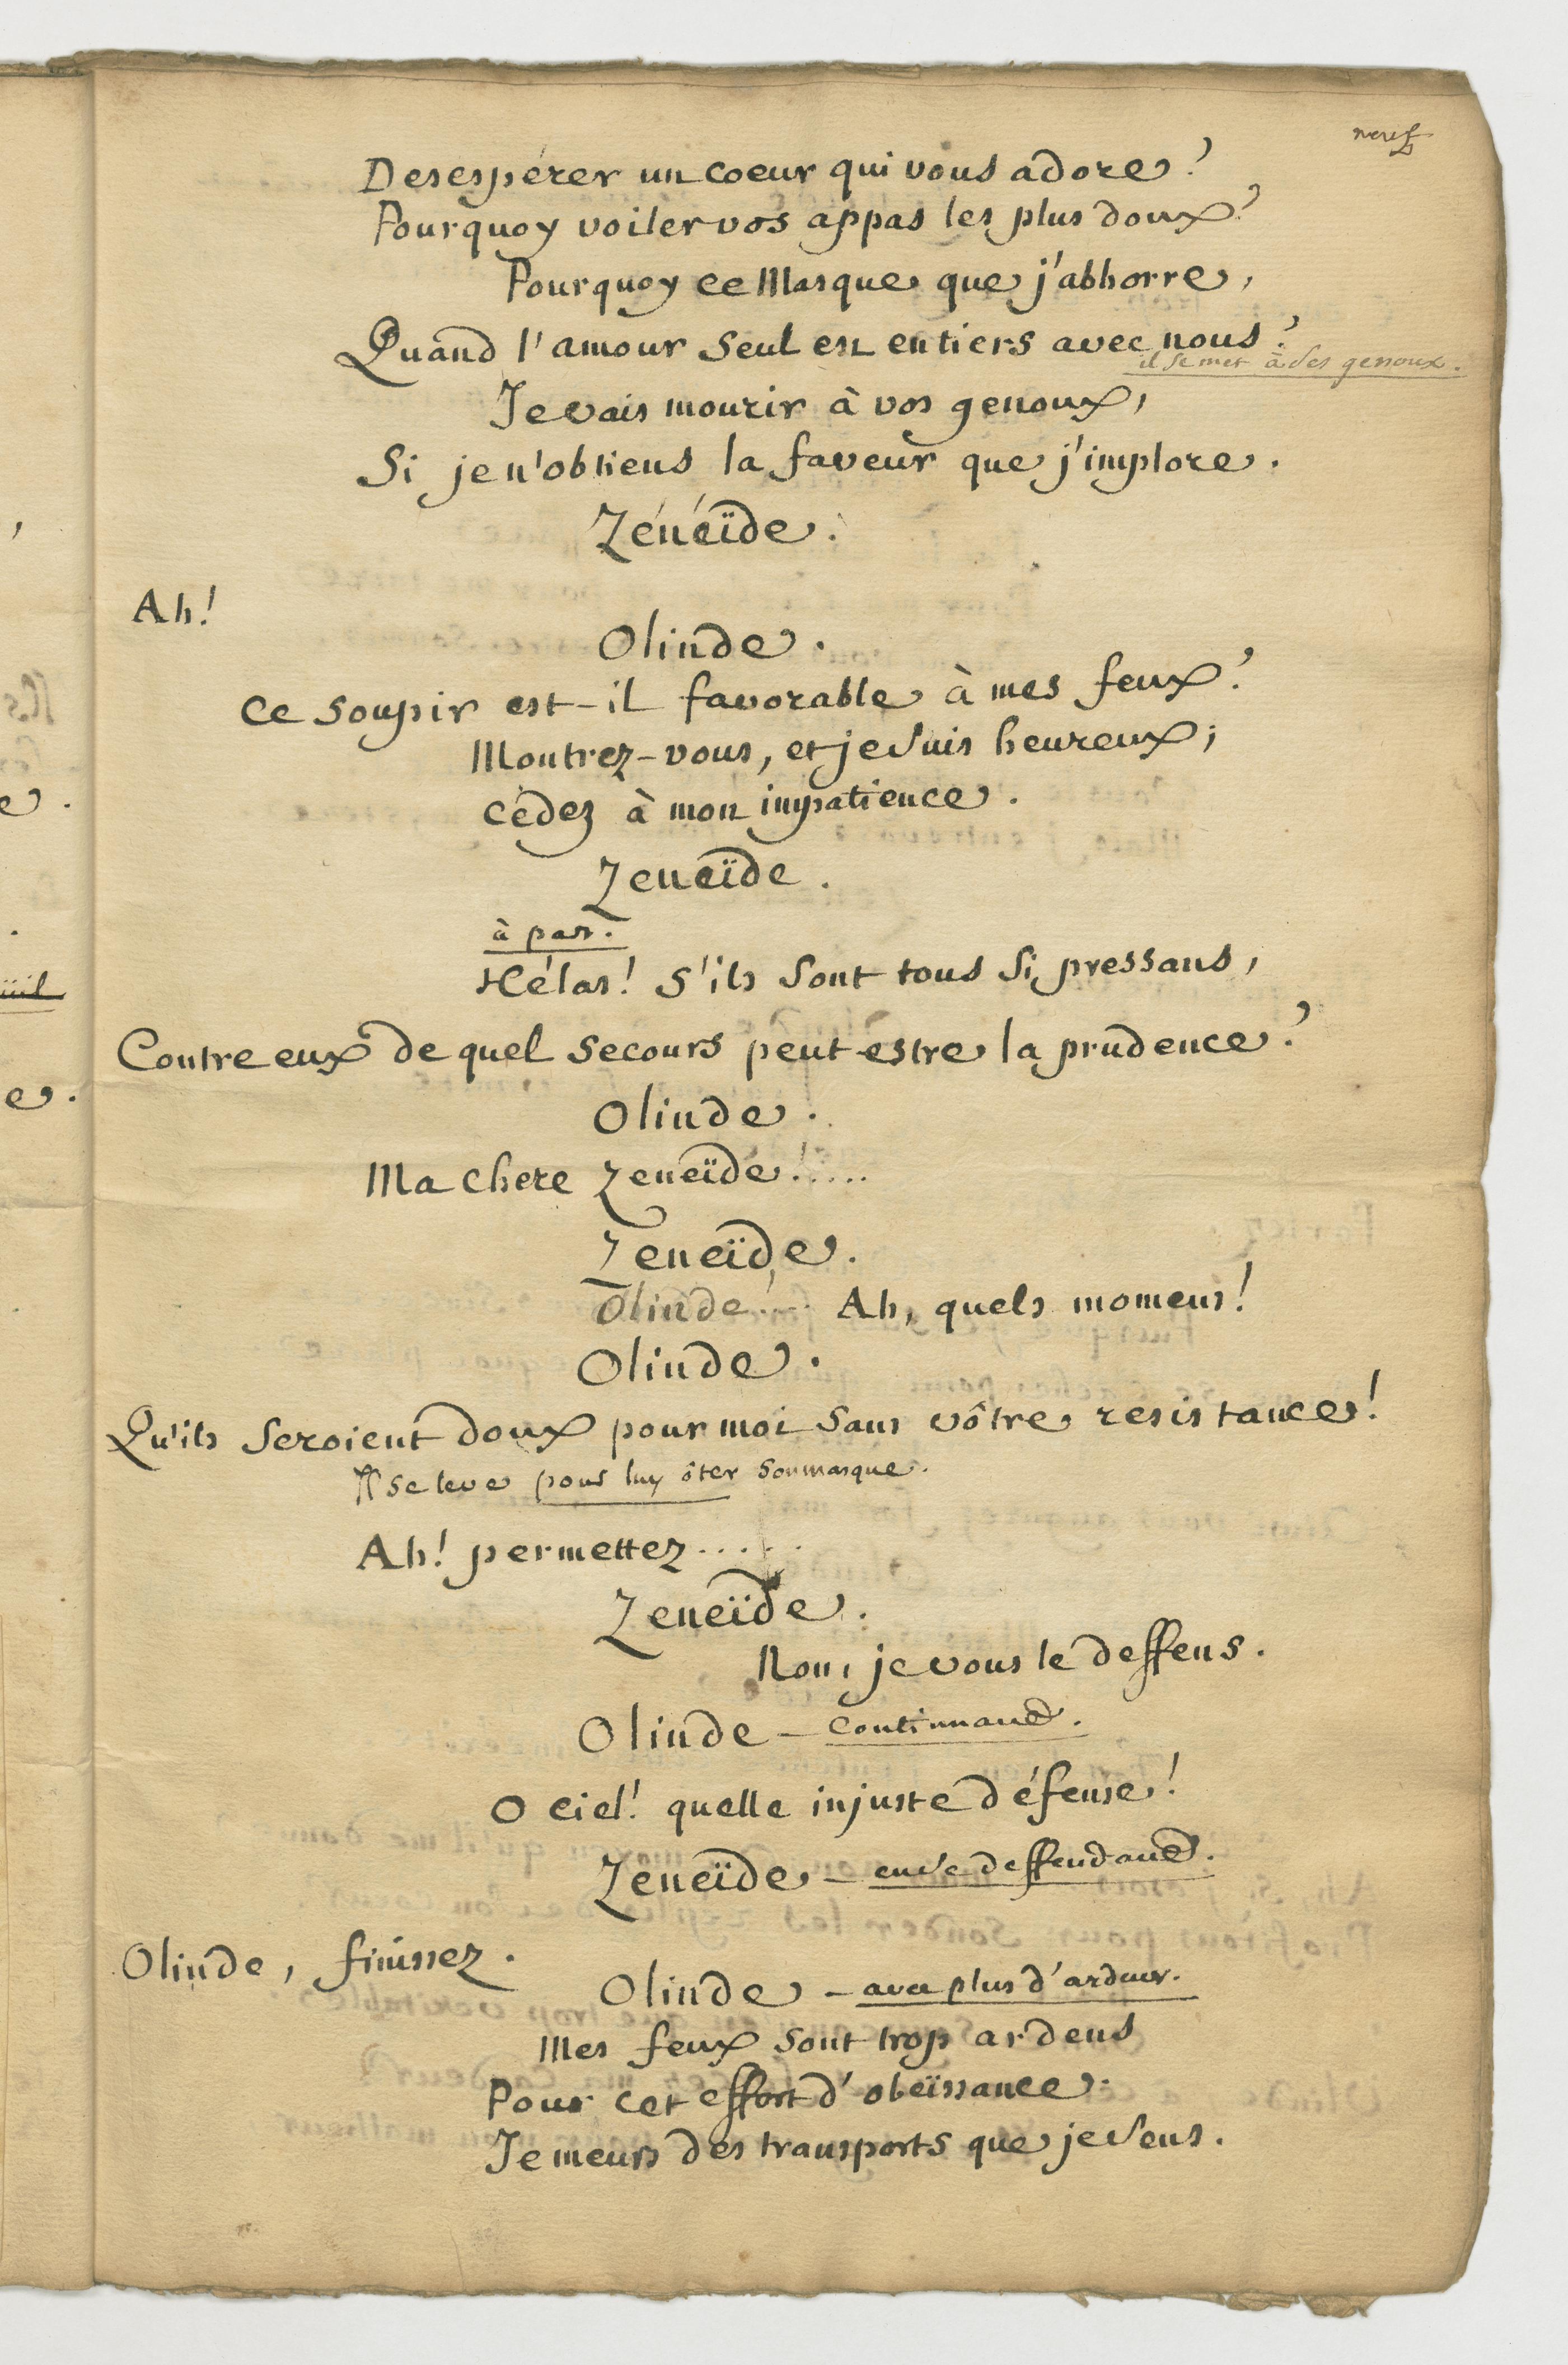 neuf
Desespérer un coeur qui vous adore?
Pourquoy voiler vos appas les plus doux?
Pourquoy ce Masque que j'abhorre,
Quand l'amour seul est en tiers avec nous?
il se met à ses genoux.
Je vais mourir à vos genoux,
Si je n'obtiens la faveur que j'implore.
Zénéïde.
Ah!
Olinde.
Ce soupir est-il favorable à mes feux?
Montrez-vous, et je suis heureux;
Cédez à mon impatience.
Zeneïde.
à part.
Hélas! s'ils sont tous si pressans,
Contre eux de quel secours peut estre la prudence?
Olinde.
Ma chere Zeneïde!.....
Zeneïde.
Olinde!... Ah, quels momens!
Olinde.
Qu'ils seroient doux pour moi sans vôtre resistance!
Il se leve pour luy ôter son masque.
Ah! permettez.....
Zeneïde.
Non, je vous le deffens.
Olinde - continuant.
O ciel! quelle injuste défense!
Zeneïde - en se deffendant.
Olinde, finissez.
Olinde - avec plus d'ardeur.
Mes feux sont trop ardens
Pour cet effort d'obeïssance.
Je meurs des transports que je sens.